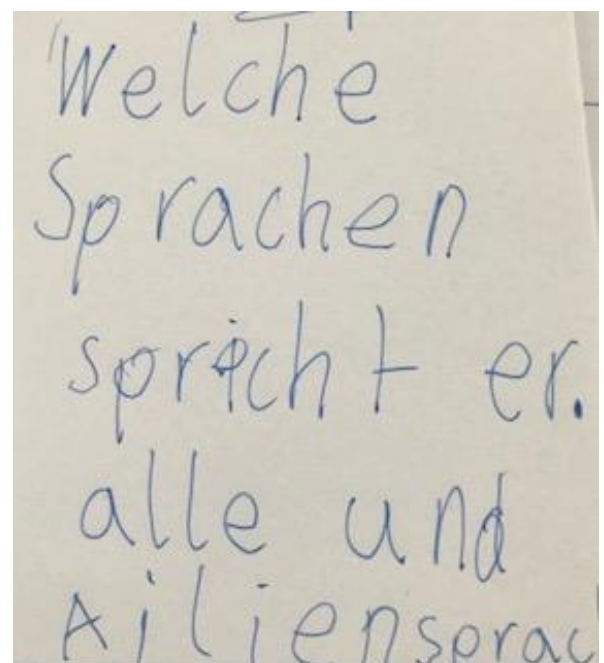 Welche
Sprachen
spricht er.
alle und
Ailiensprac